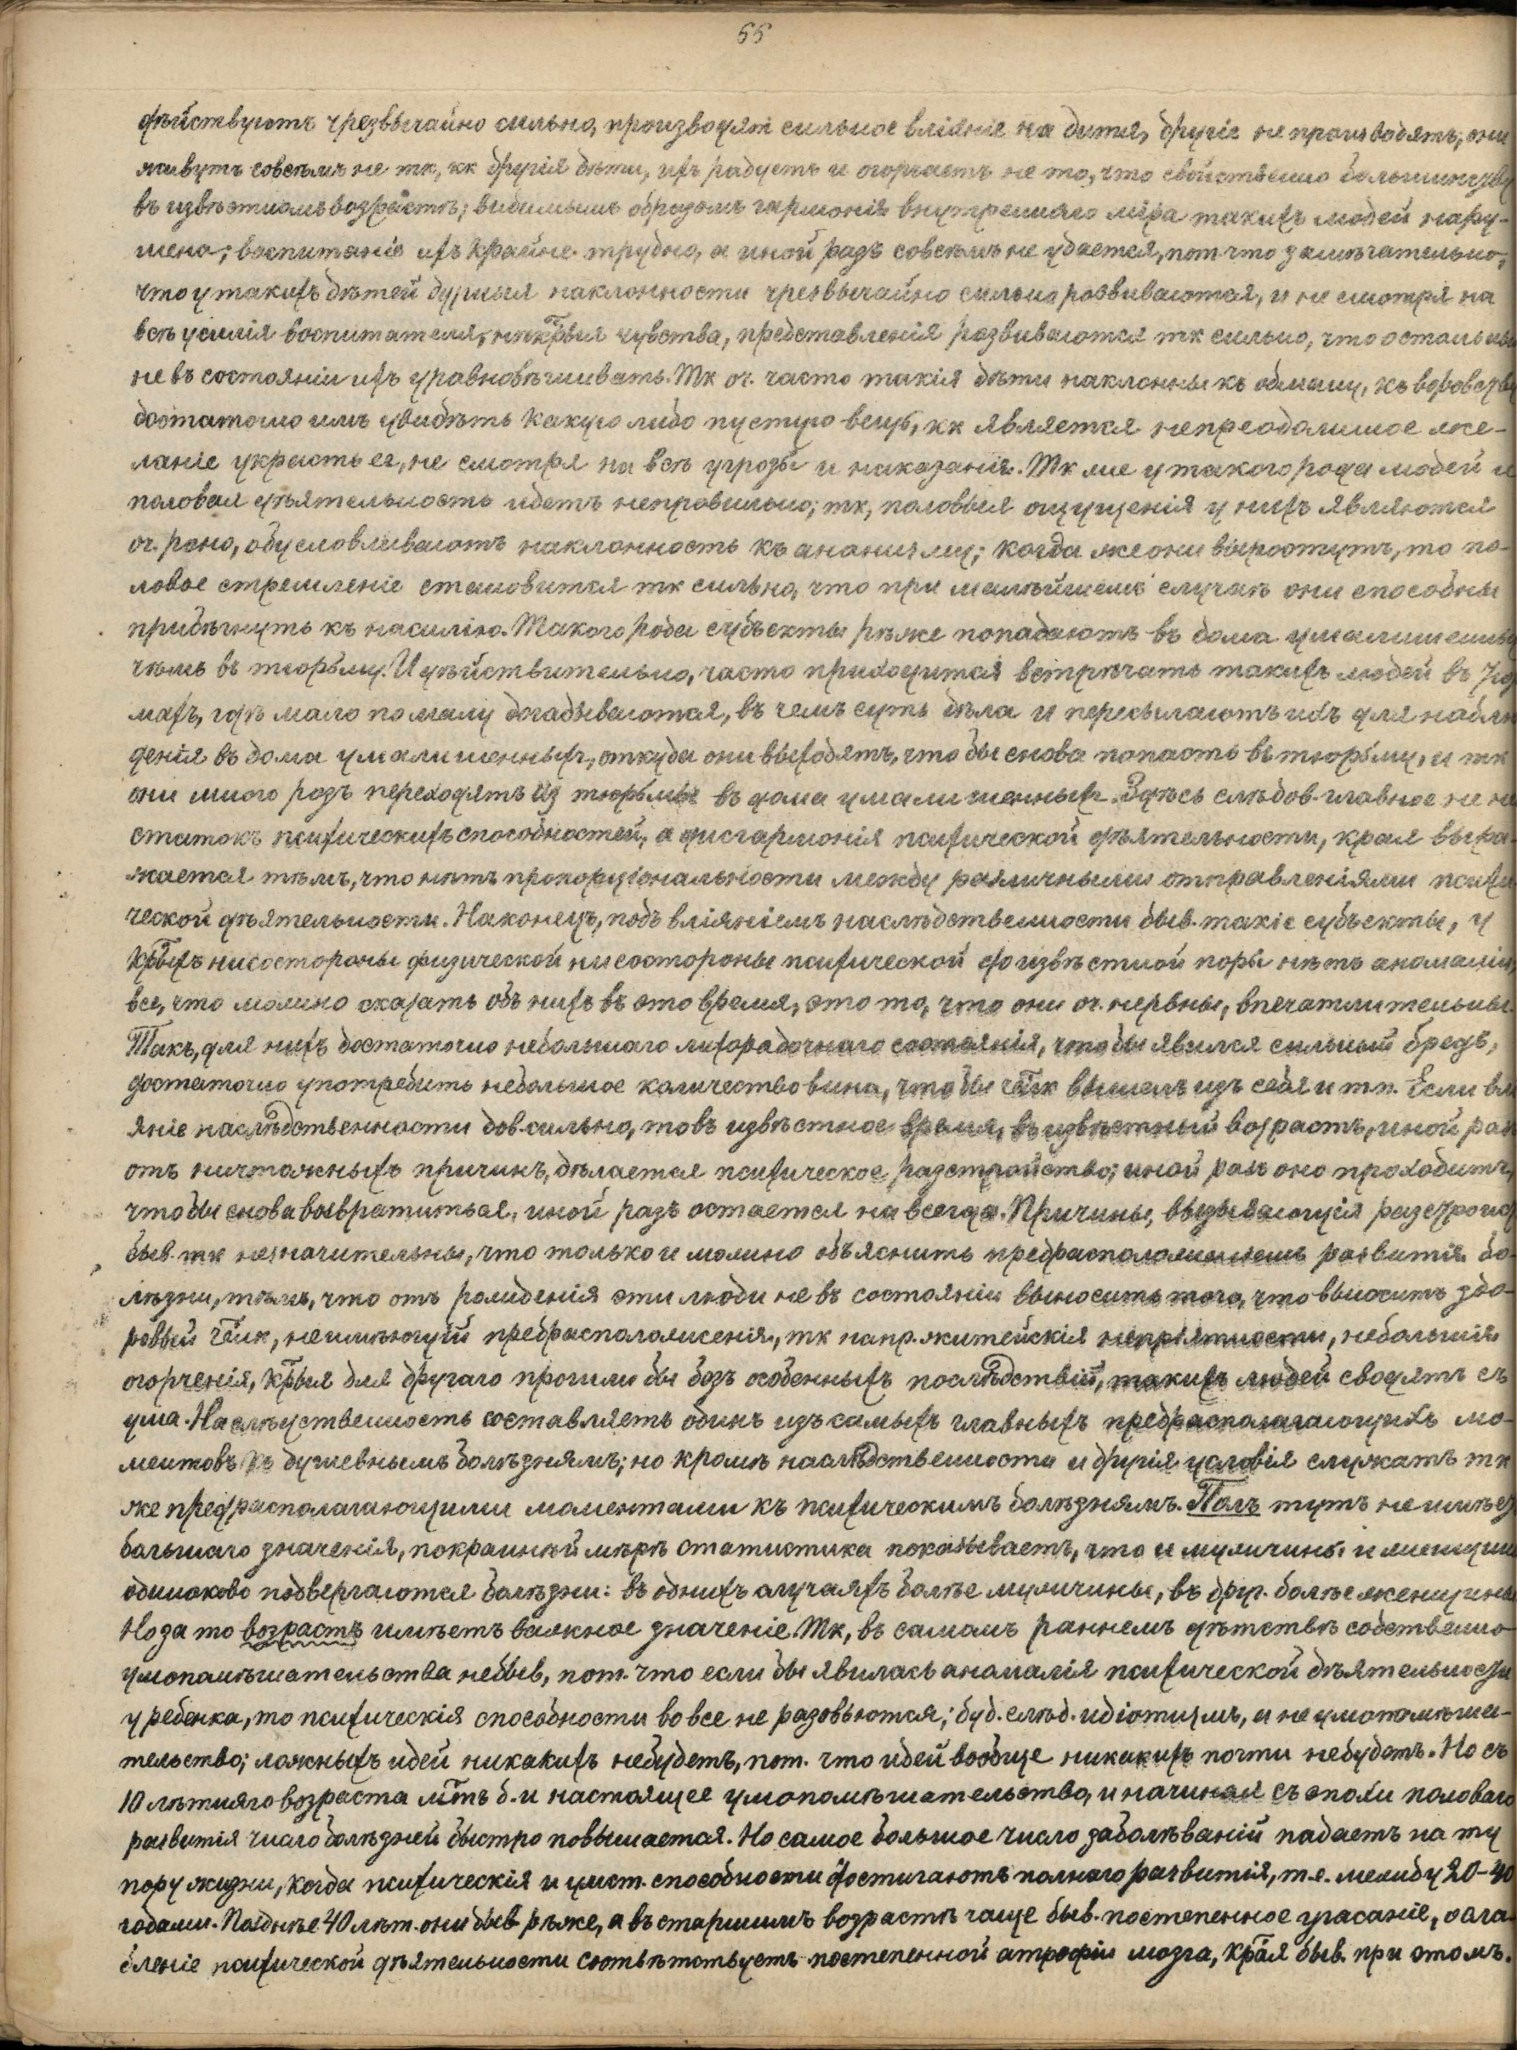 55
дѣйствуютъ чрезвычайно сильно, производятъ сильное вліяніе на дитя, другіе не производятъ; они
живутъ совсѣмъ не тк, кк другія дѣти, ихъ радуетъ и огорчаетъ не то, что свойственно большинству
въ извѣстномъ возрастѣ; видимымъ образомъ гармонія внутренняго міра такихъ людей нару-
шена; воспитаніе ихъ крайне трудно, а иной разъ совсѣмъ не удается, пот. что замѣчательно,
что у такихъ дѣтей дурныя наклонности чрезвычайно сильно развиваются, и не смотря на
всѣ усилія воспитателя, нѣкрыя чувства, представленія развиваются тк сильно, что остальныя
не въ состояніи ихъ уравновѣшивать. Тк оч. часто такія дѣти наклонны къ обману, къ воровству
достаточно имъ увидѣть какую либо пустую вещь, кк является непреодолимое же-
ланіе украсть ее, не смотря на всѣ угрозы и наказанія. Тк же у такого рода людей и
половая дѣятельность идетъ неправильно; тк, половыя ощущенія у нихъ являются
оч. рано, обусловливаютъ наклонность къ ананизму; когда же они выростутъ, то по-
ловое стремленіе становится тк сильно, что при малѣйшемъ случаѣ они способны
прибѣгнуть къ насилію. Такого рода субъекты рѣже попадаютъ въ дома умалишенныхъ
чѣмъ въ тюрьму. И дѣйствительно, часто приходится встрѣчать такихъ людей въ
махъ, гдѣ мало по малу догадываются, въ чемъ суть дѣла и пересылаютъ ихъ для наблю
денія въ дома умалишенныхъ, откуда они выходятъ, что бы снова попасть въ тюрьму, и тк
они много разъ переходятъ из тюрьмы въ дома умалишенныхъ. Здѣсь слѣдов. главное не не
статокъ психическихъ способностей, а дисгармонія психической дѣятельности, края выра-
жается тѣмъ, что нѣтъ пропорціональности между различными отправленіями психи
ческой дѣятельности. Наконецъ, подъ вліяніемъ наслѣдственности быв. такіе субъекты, у
крыхъ ни со стороны физической ни со стороны психической до извѣстной поры нѣтъ аномаліи,
все, что можно сказать объ нихъ въ это время, это то, что они оч. нервны, впечатлительны.
Такъ, для нихъ достаточно небольшаго лихорадочнаго состоянія, что бы явился сильный бредъ,
достаточно употребить небольшое количество вина, что бы члк вышелъ изъ себя и тп. Если влі
яніе наслѣдственности дов. сильно, то въ извѣстное время, въ извѣстный возрастъ, иной раз
отъ ничтожныхъ причинъ, дѣлается психическое разстройство; иной разъ оно проходитъ,
что бы снова возвратиться, иной разъ остается на всегда. Причины, вызывающія разстройс
быв. тк незначительны, что только и можно объяснить предрасположеніемъ развитія бо-
лѣзни, тѣмъ, что отъ рожденія эти люди не въ состояніи выносить того, что выноситъ здо-
ровый члк, неимѣющій предрасположенія, тк напр. житейскія непріятности, небольшія
огорченія, крыя для другаго прошли бы безъ особенныхъ послѣдствій, такихъ людей сводятъ съ
ума. Наслѣдственность составляетъ одинъ изъ самыхъ главныхъ предрасполагающихъ мо-
ментовъ къ душевнымъ болѣзнямъ; но кромѣ наслѣдственности и другія условія служатъ тк
же предрасполагающими моментами къ психическимъ болѣзнямъ. Полъ тутъ не имѣет
большаго значенія, покрайнѣй мѣрѣ статистика показываетъ, что и мужчины и женщины
одинаково подвергаются болѣзни: въ однихъ случаяхъ болѣе мужчины, въ друг. болѣе женщины
Но за то возрастъ имѣетъ важное значеніе. Тк, въ самомъ раннемъ дѣтствѣ собственно
умопомѣшательства небыв, пот. что если бы явилась аномалія психической дѣятельности
у ребенка, то психическія способности во все не разовьются; буд. слѣд. идіотизмъ, а не умопомѣша-
тельство; ложныхъ идей никакихъ небудетъ, пот. что идей вообще никакихъ почти небудетъ. Но съ
10 лѣтняго возраста мтъ б. и настоящее умопомѣшательство, и начиная съ эпохи половаго
развитія число болѣзней быстро повышается. Но самое большое число заболѣваній падаетъ на ту
пору жизни, когда психическія и умст. способности достигаютъ полнаго развитія, т.е. между 20–40
годами. Позднѣе 40 лѣт. они быв рѣже, а въ старшимъ возрастѣ чаще быв. постепенное угасаніе, осла-
бленіе психической дѣятельности соотвѣтствуетъ постепенной атрофіи мозга, края быв. при этомъ.